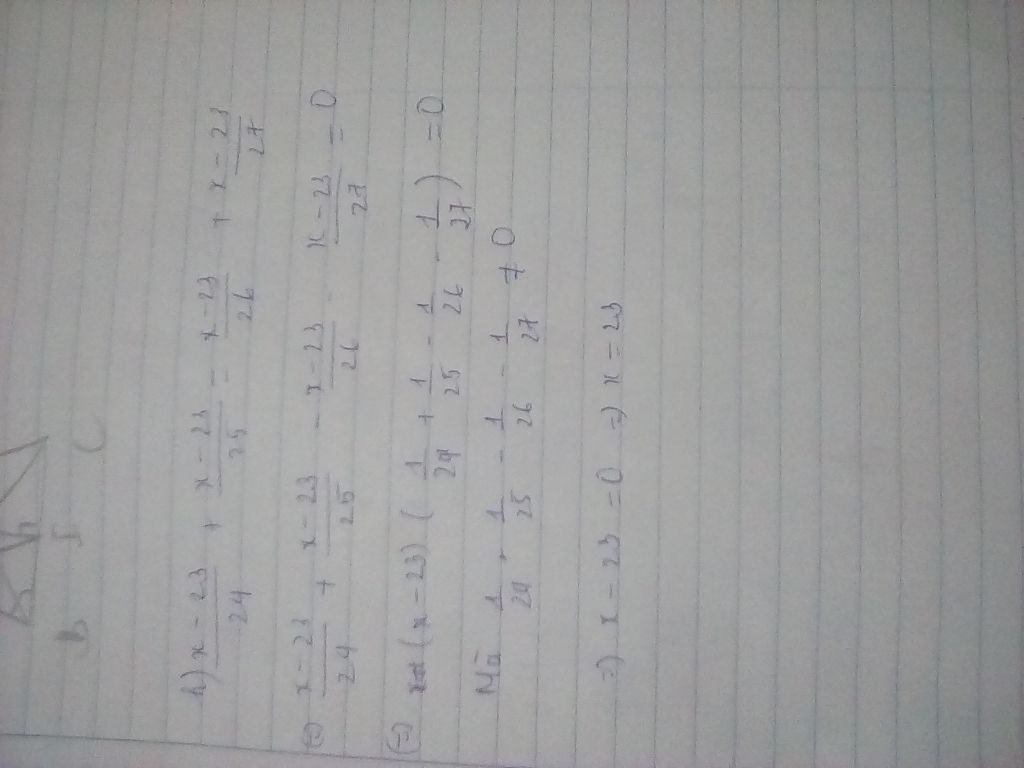 B I C
h) x-23/24 + x-23/25 = x-23/26 + x-23/27
(=) x-23/24 + x-23/25 - x-23/26 - x-23/27 = 0
(=) (x-23)(1/24 + 1/25 - 1/26 - 1/27) = 0
Mà 1/24 + 1/25 - 1/26 - 1/27 ≠ 0
=) x-23 = 0 =) x = 23